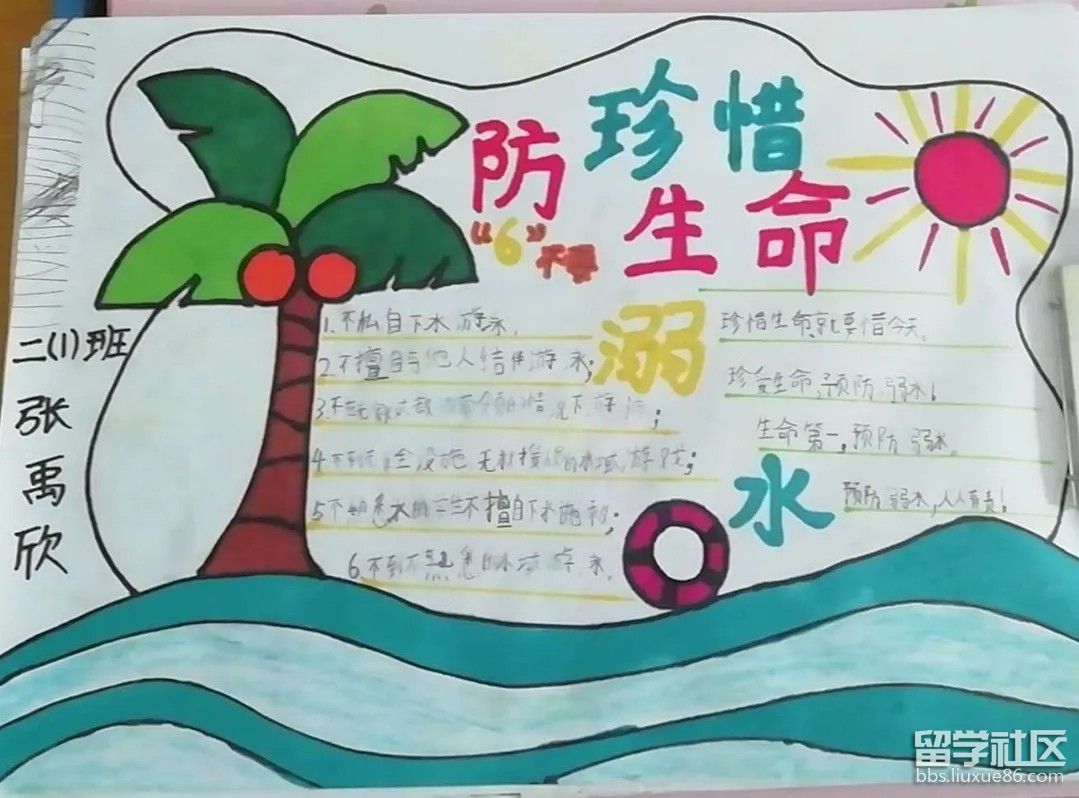 珍惜
生命
防
溺
水
"6"不要
1.不私自下水游水,
2.不擅自与他人结伴游水;
4.不到无 全设施 无救援 的水域游玩;
5.不 悉水 的学生不擅自下水施救;
6.不到不 悉的水 水,
珍惜生命就要惜今天。
珍 生命,预防弱水!
生命第一,预防弱水。
预防弱水,人人有责!
二(1)班
张
禹
欣
留学社区
bbs.liuxue86.com